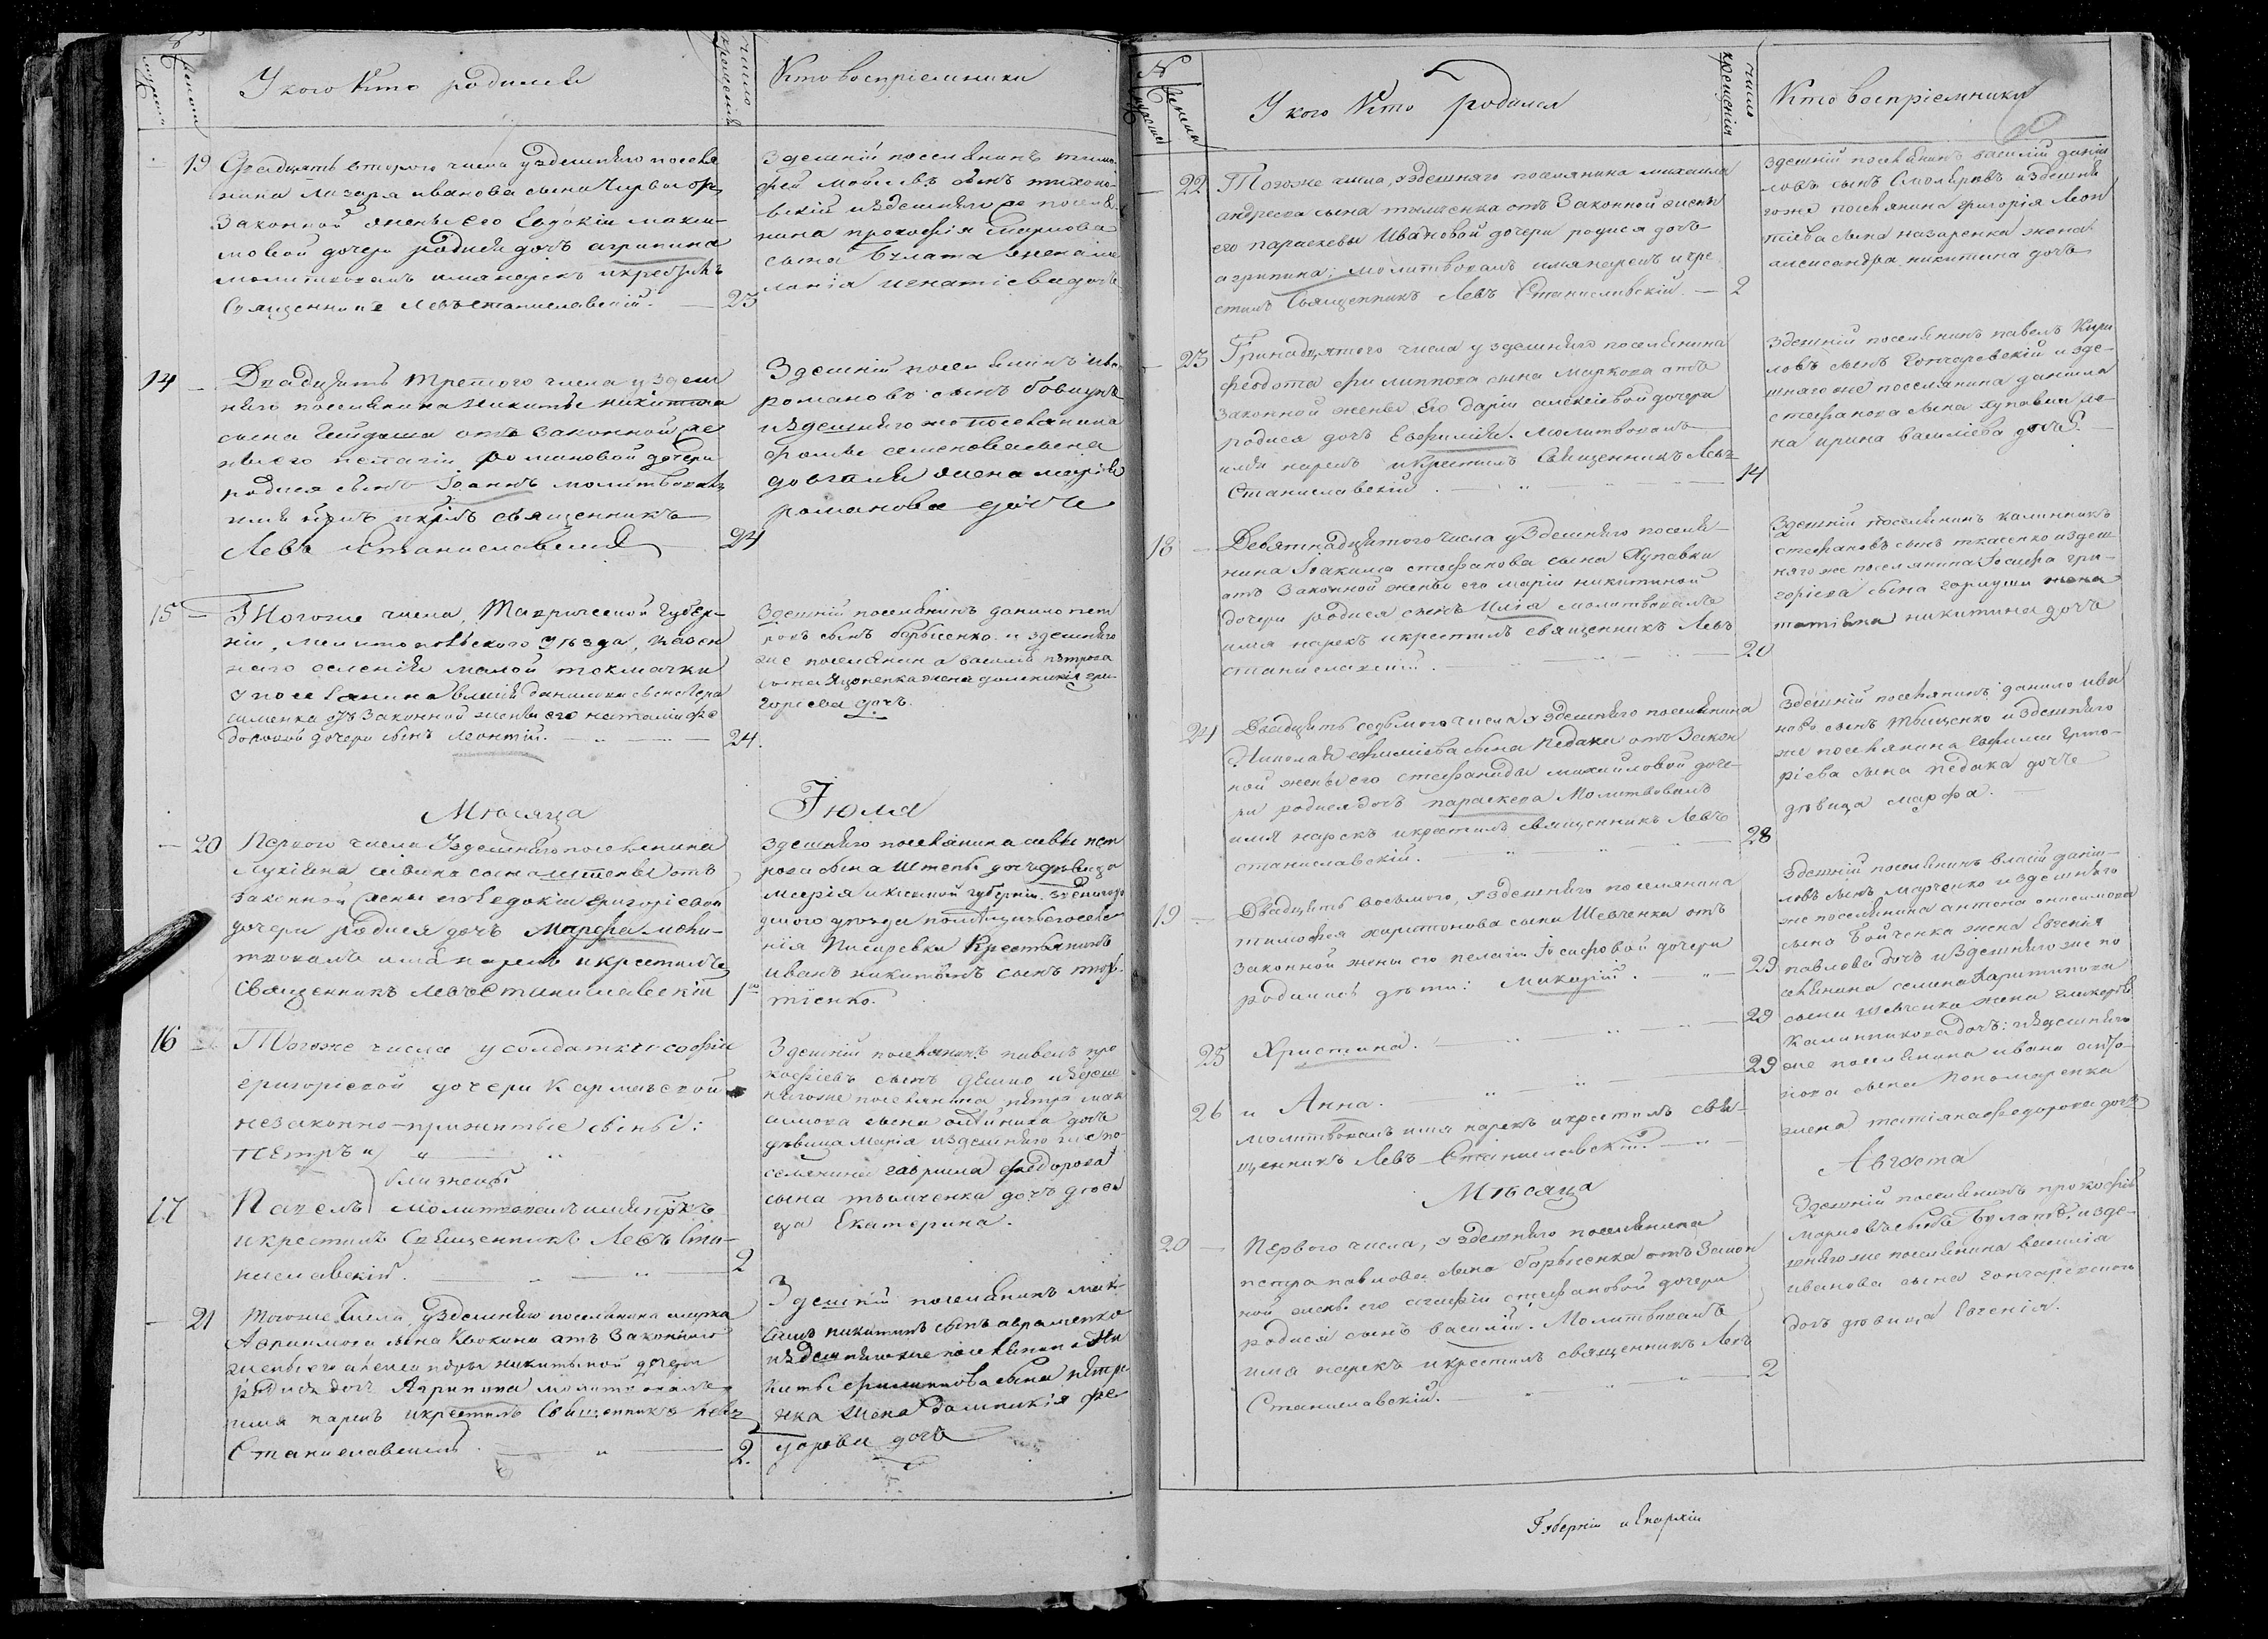 У кого кто родился
число крещения
Кто воспріемники
19 Двадцать второго числа у здешняго поселя
нина Лазаря иванова сына
Законной жены его Евдокіи макси-
мовой дочери родися дочь агрипина
молитвовалъ имя нарекъ и крестилъ
Священникъ Левъ Станиславскій. 23
Здешній поселянинъ тимо
фей Мойсеевъ сынъ тихоно-
вскій и здешняго же поселя
нина прокофія Маркова
сына Булата жена ме
ланія игнатіева дочь
14 Двадцать третого числа у здеш
няго поселянина Никиты никитина
сына отъ законной же
ны его пелагіи романовой дочери
родися сынъ Іоаннъ молитвовалъ
имя священникъ
Левъ Станиславскій 24
Здешній поселянинъ
романовъ сынъ бовкунъ
и здешняго же поселянина
фомы семенова сына
довгаля жена марія
романова дочь
15 Тогоже числа, Таврической Губер-
ніи, Мелитопольского Уезда, казен
наго селенія малой токмачки
у поселянина данилова сына Гера
сименка отъ Законной жены его наталіи фе
доровой дочери сынъ Леонтій. 24.
Здешній поселянинъ данило пет
ровъ сынъ борисенко и здешняго
же поселянина василія петрова
сына Яценка жена домникія гри-
горіева дочь.
Мѣсяца Іюля
20 Перваго числа У здешняго поселянина
Лукіяна савина сына штепы отъ
Законной жены его Евдокіи Григоріевой
дочери родися дочь Марфа моли-
твовалъ имя нарекъ и крестилъ
Священникъ Левъ Станиславскій 1го
здешняго поселянина саввы пет
рова сына Штепы дочь девица
Марія и кіевской губерніи
уезда селе
нія Писаревки Крестьянинъ
иванъ никитинъ сынъ
16 Тогоже числа у солдатки софіи
григоріевой дочери Кармазской
незаконно-прижитые сыны:
Петръ и
близнецы
17 Павелъ молитвовалъ имя нрекъ
и крестилъ Священникъ Левъ Ста-
ниславскій. 2
Здешній поселянинъ павелъ про
кофіевъ сынъ и здеш
нягоже поселянина петра мак
симова сына дочь
девица Марія и здешняго же по-
селянина гаврила федорова
сына тымченка дочь деви
ца Екатерина.
21 Тогоже Числа, у здешняго поселянина марка
Аврамова сына отъ Законной
жены его никитиной дочери
родися дочь Агрипина молитвовалъ
имя нарекъ и крестилъ Священникъ Левъ
Станиславскій 2.
Здешній поселянинъ мак
симъ никитинъ сынъ авраменко
и здешнягоже поселянина Ни
киты филиппова сына петре
нка жена Домникія фе
дорова дочь
У кого кто родился
число крещенія
Кто воспріемники
22 Тогоже числа, у здешняго поселянина михаила
андреева сына тымченка отъ Законной жены
его параскевы Ивановой дочери родися дочь
агрипина; молитвовалъ имя нарекъ и кре
стилъ Священникъ Левъ Станиславскій. 2
здешній поселянинъ василій дани
ловъ сынъ и здешня
гоже поселянина григорія Леон
тіева сына назаренка жена
александра никитина дочь
23 Тринадцятого числа у здешняго поселянина
феодота филиппова сына Маркова отъ
законной жены его даріи алексіевой дочери
родися дочь Евфимія. молитвовалъ
имя нарекъ и крестилъ Священникъ Левъ
Станиславскій. 14
здешній поселянинъ павелъ Кири
ловъ сынъ Гончаревскій и зде-
шнягоже поселянина данила
стефанова сына хупавки же
на ирина василіева дочь.
18 Девятнадцятого числа у здешняго поселя-
нина Іоакима стефанова сына Хупавки
отъ Законной жены его маріи никитиной
дочери родися сынъ Илія молитвовалъ
имя нарекъ и крестилъ священникъ Левъ
станиславскій. 20
Здешній поселянинъ калинникъ
стефановъ сынъ ткаченко и здеш
нягоже поселянина Іосифа гри-
горіева сына гаркуши жена
татіяна никитина дочь
24 Двадцать седьмого числа у здешняго поселянина
Николая ефиміева сына педака отъ Закон
ной жены его стефаниды михайловой доче-
ри родися дочь параскева Молитвовалъ
имя нарекъ и крестилъ священникъ Левъ
станиславскій. 28
здешній поселянинъ данило ива
новъ сынъ тыщенко и здешняго
же поселянина Ефима григо-
ріева сына педака дочь
девица марфа.
19 Двадцать восьмого, у здешняго поселянина
тимофея харитонова сына Шевченка отъ
законной жены его пелагіи Іосифовой дочери
родились дети: Макарій. 29
25 Христина. 29
26 и Анна. 29
молитвовалъ имя нарекъ и крестилъ свя-
щенникъ Левъ Станиславскій.
Здешній поселянинъ власій дани-
ловъ сынъ марченко и здешняго
же поселянина антона онисимова
сына Бойченка жена Евгенія
павлова дочь и здешняго же по
селянина Харитинова
сына шевченка жена гликерія
Калинникова дочь: и здешняго
же поселянина ивана
сына Пономаренка
жена татіяна федорова дочь
Мѣсяца Августа
20 Перваго числа, у здешняго поселянина
петра павлова сына борисенка отъ Закон
ной жены его агафіи стефановой дочери
родися сынъ василій. Молитвовалъ
имя нарекъ и крестилъ священникъ Левъ
Станиславскій. 2
Здешній поселянинъ прокофій
марковъ сынъ Булатъ и зде-
шнягоже поселянина василія
иванова сына гончаревского
дочь девица Евгенія.
Губерніи и Епархіи